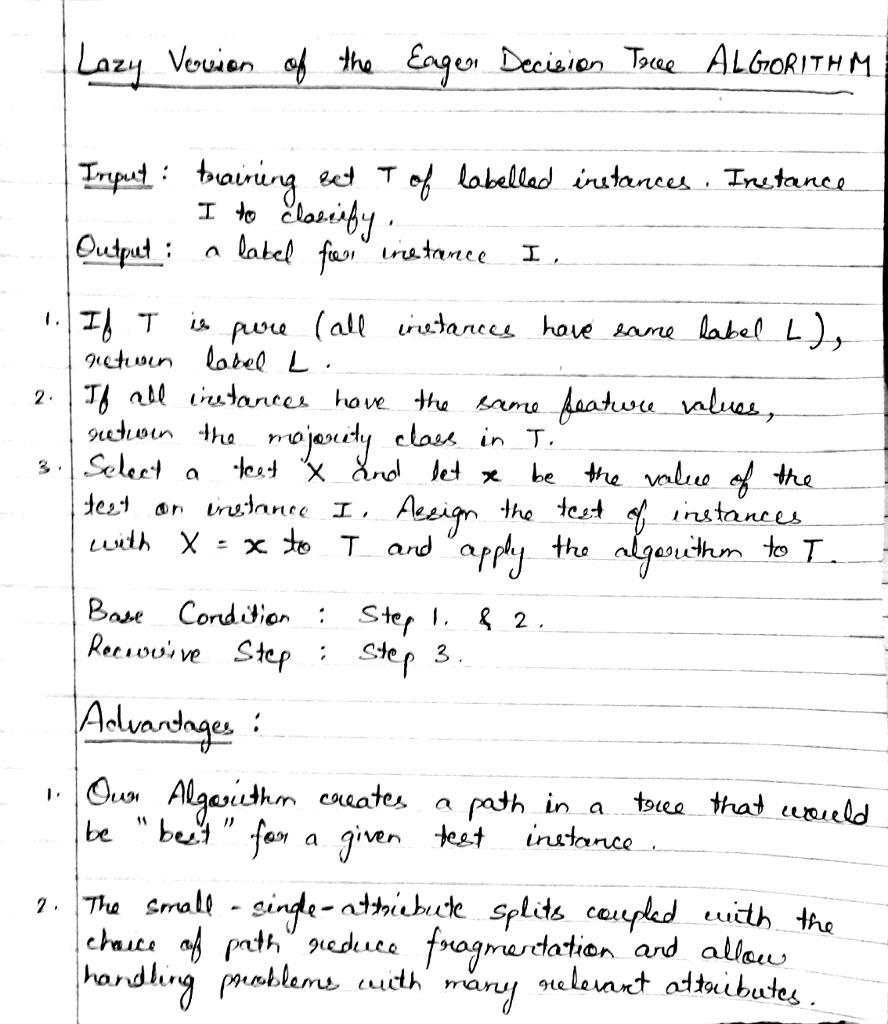 Lazy Version of the Eager Decision Tree ALGORITHM
Input : training set T of labelled instances. Instance
I to classify.
Output : a label for instance I.
1. If T is pure (all instances have same label L),
return label L.
2. If all instances have the same feature values,
return the majority class in T.
3. Select a test X and let x be the value of the
test on instance I. Assign the test of instances
with X = x to T and apply the algorithm to T.
Base Condition : Step 1. & 2.
Recursive Step : Step 3.
Advantages :
1. Our Algorithm creates a path in a tree that would
be "best" for a given test instance.
2. The small - single-attribute splits coupled with the
choice of path reduce fragmentation and allow
handling problems with many relevant attributes.